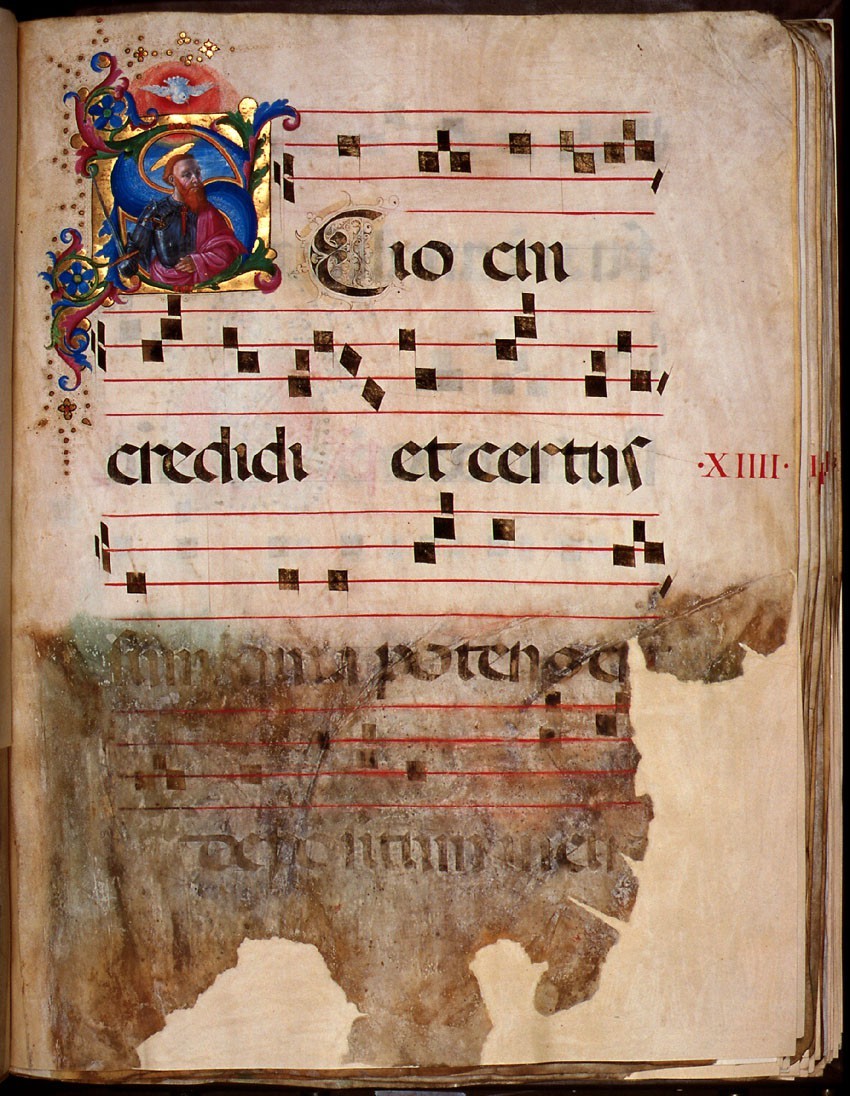 SCio cui
credidi et certus
·XIIII·
sum quia potens est
depositum meum